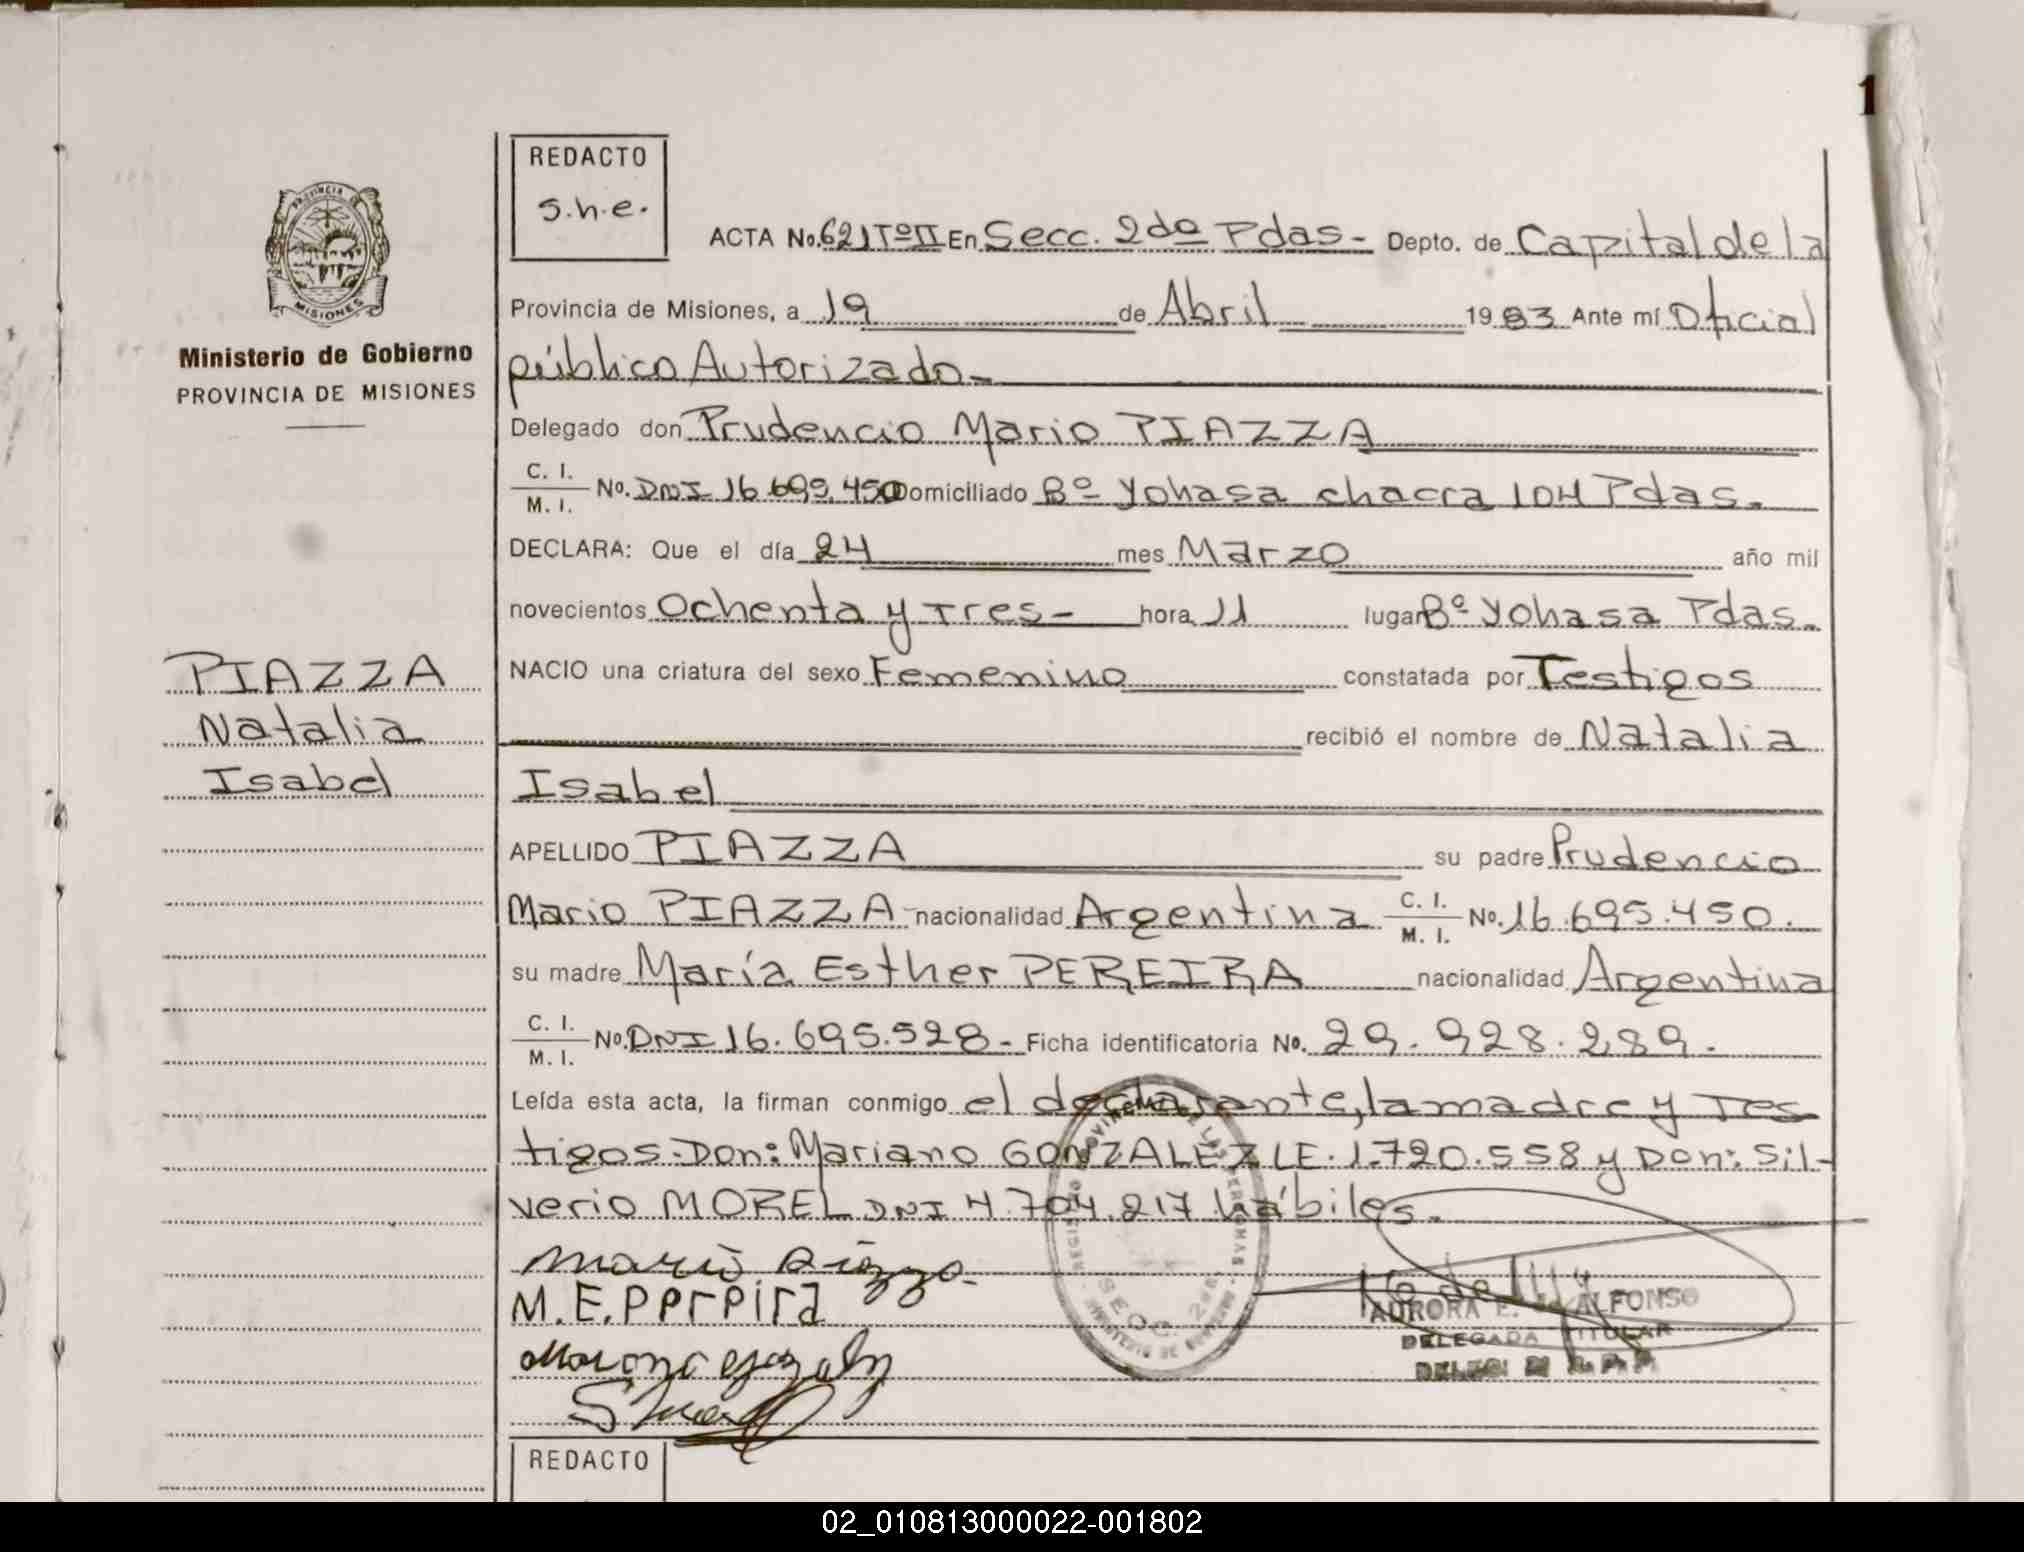 1
REDACTO
s.h.e.
ACTA No. 621 Tº II En Secc. 2da Pdas- Depto. de Capital de la
PROVINCIA DE
MISIONES
Provincia de Misiones, a 19 de Abril 1983 Ante mí Oficial
Ministerio de Gobierno
PROVINCIA DE MISIONES
público Autorizado-
Delegado don Prudencio Mario PIAZZA
C. I.
M. I. No. DNI 16.695.450 Domiciliado Bº Yohasa chacra 104 Pdas.
DECLARA: Que el día 24 mes Marzo año mil
novecientos Ochenta y Tres- hora 11 lugar Bº Yohasa Pdas.
PIAZZA
Natalia
Isabel
NACIO una criatura del sexo Femenino constatada por Testigos
recibió el nombre de Natalia
Isabel
APELLIDO PIAZZA su padre Prudencio
Mario PIAZZA- nacionalidad Argentina C. I. M. I. No. 16.695.450.
su madre María Esther PEREIRA nacionalidad Argentina
C. I.
M. I. No. DNI 16.695.528- Ficha identificatoria No. 29.928.289.
Leída esta acta, la firman conmigo el declarante, la madre y Tes
tigos. Don: Mariano GONZALEZ LE. 1.720.558 y Don: Sil-
verio MOREL DNI 4.704.217 hábiles.
Mario Piazza
M.E. Pereira
SECC. 2da
AURORA E. ALFONSO
DELEGADA TITULAR
REDACTO
02_010813000022-001802